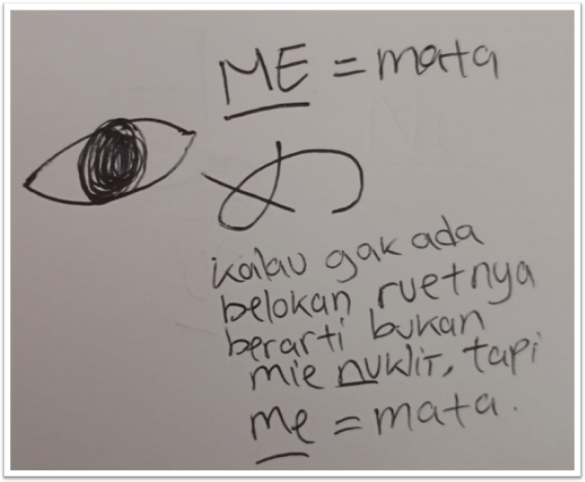 ME = mata
め
kalau gak ada
belokan ruetnya
berarti bukan
mie nuklir, tapi
me = mata.